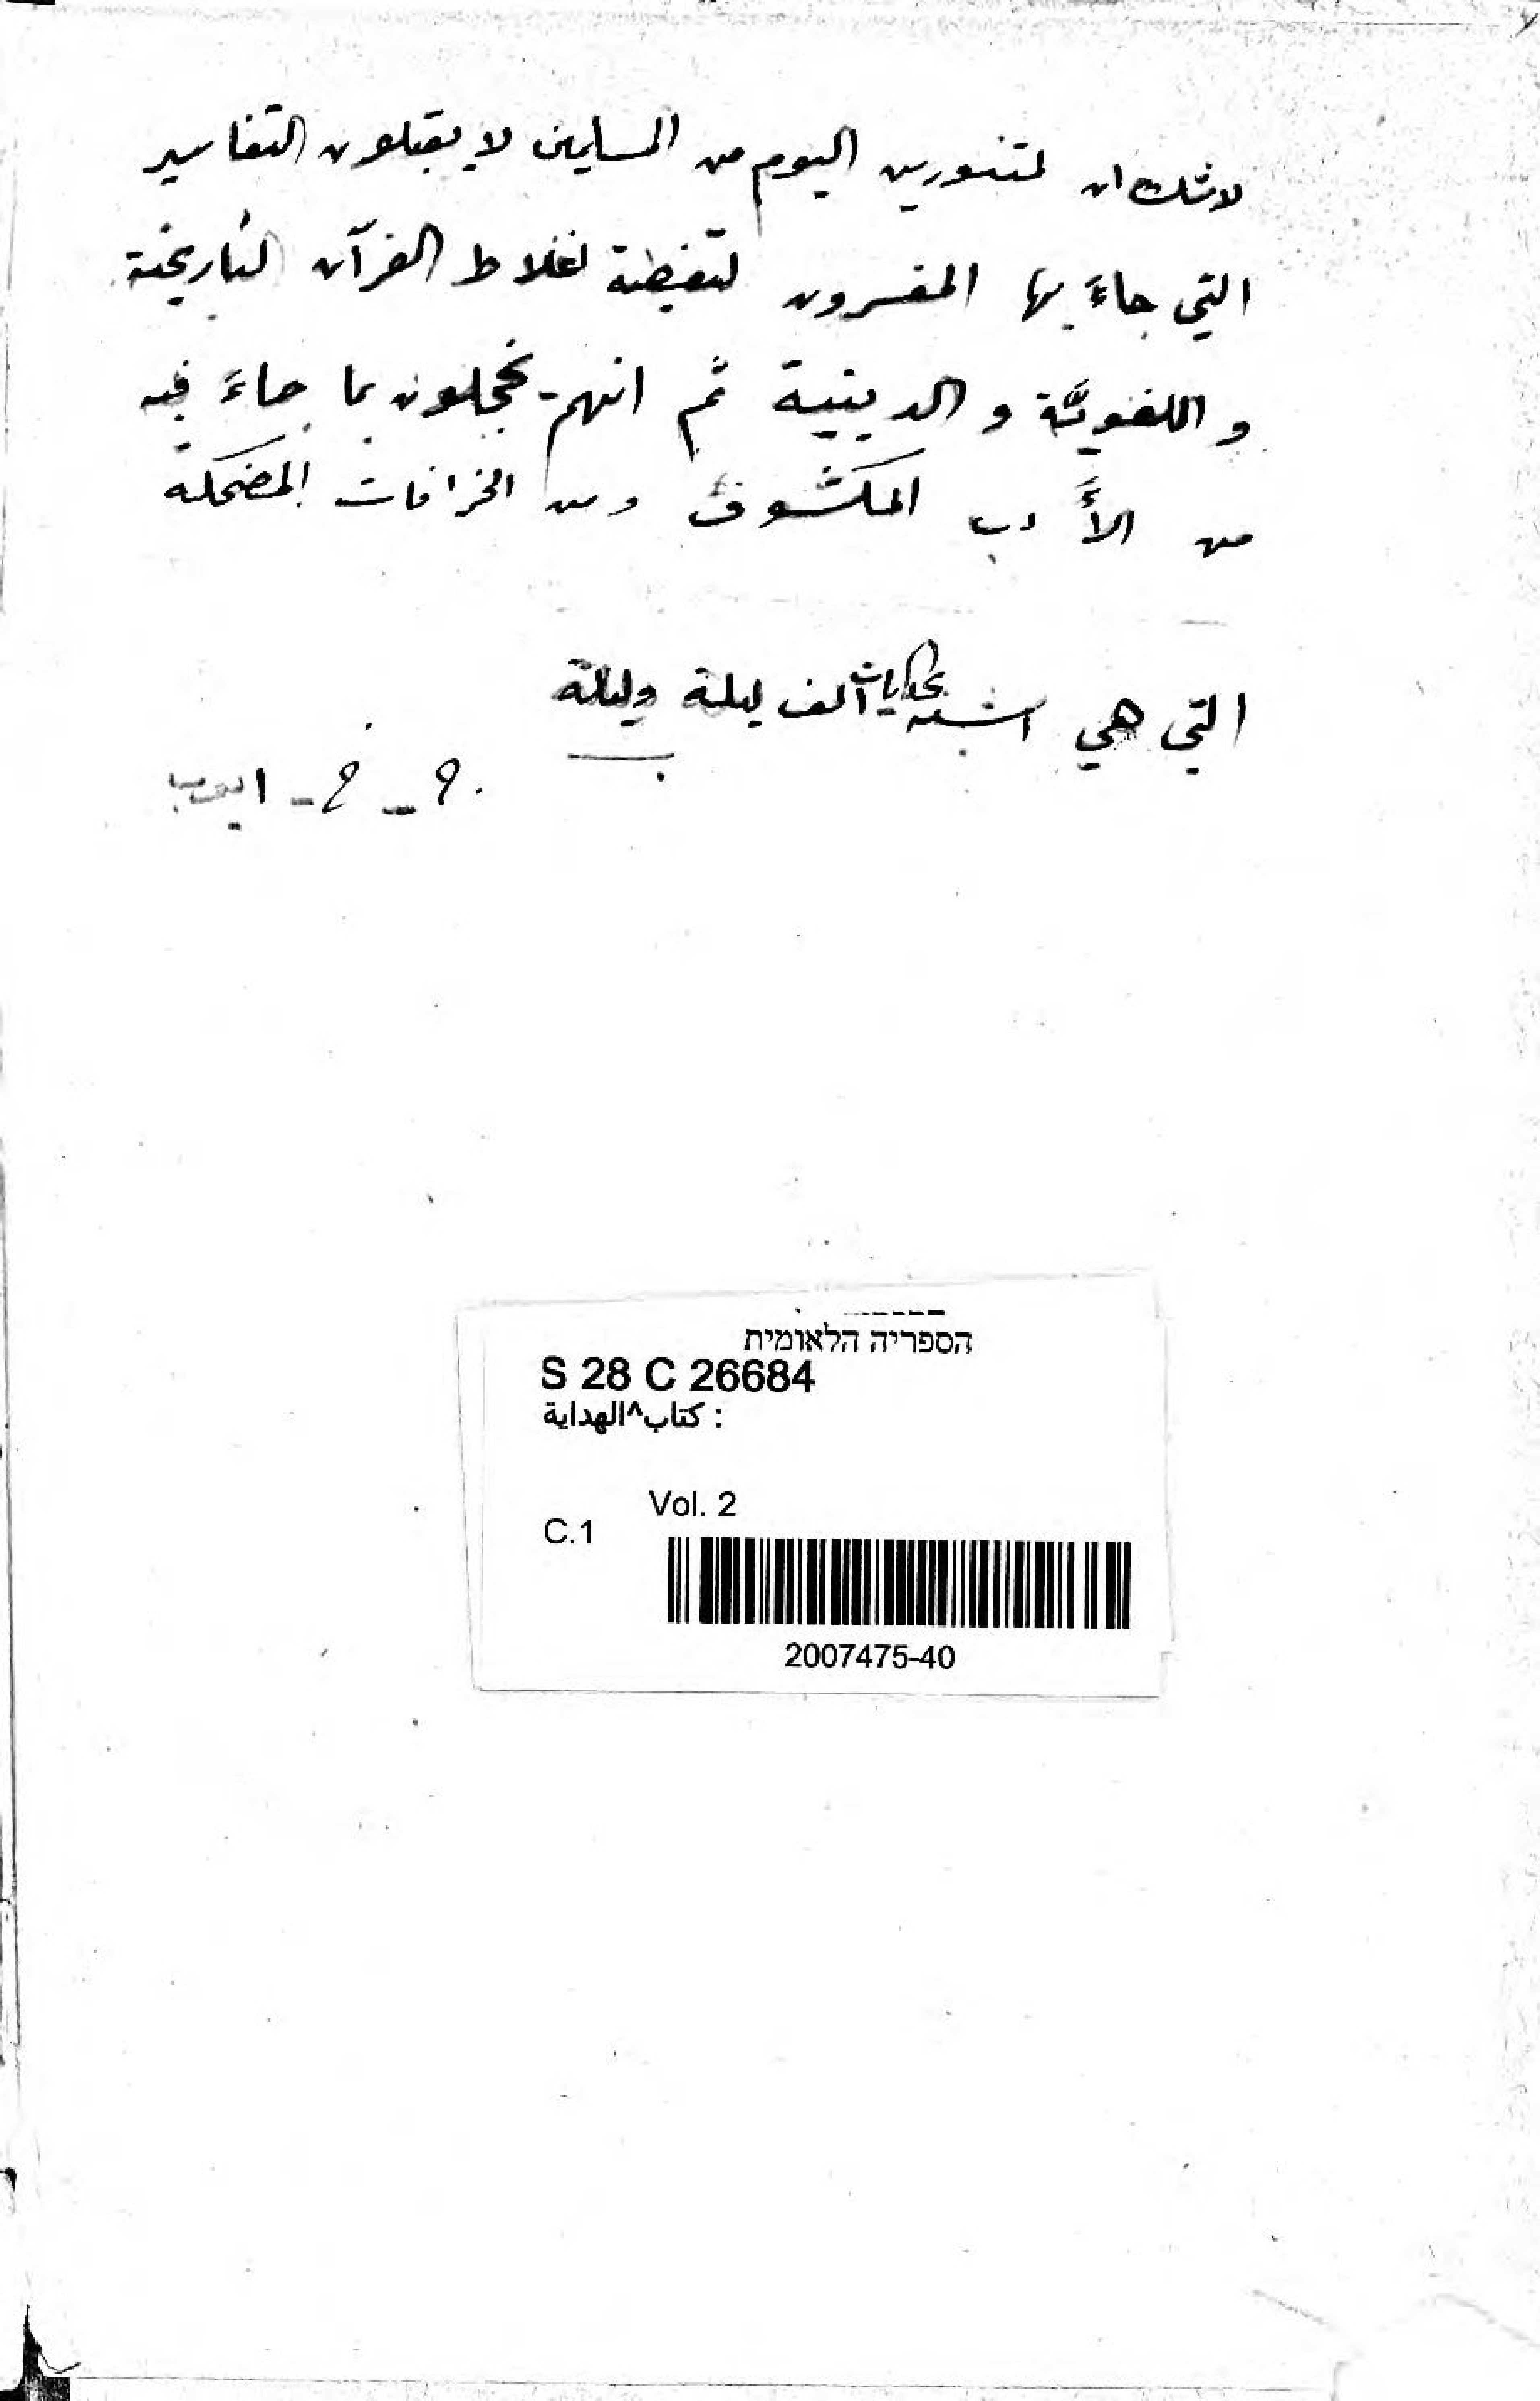 لا شك ان لمتنورين اليوم من المسلمين لا يقبلون التفاسير
التي جاءَ بها المفسرون لتغطية اغلاط القرآن التاريخية
و اللغويَّة و الدينية ثم انهم يخجلون بما جاءَ فيه
من الأَدب المكشوف ومن الخرافات المضحكه
التي هي اشبه بحكايات الف ليلة وليلة
ايوب
הספריה הלאומית
S 28 C 26684
كتاب^الهداية :
Vol. 2
C.1
2007475-40